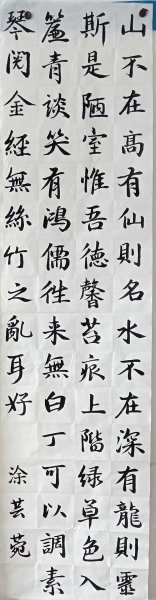 山不在高有仙則名水不在深有龍則靈
斯是陋室惟吾德馨苔痕上階綠草色入
簾青談笑有鴻儒往来無白丁可以調素
琴閱金經無絲竹之亂耳好 涂芸菀